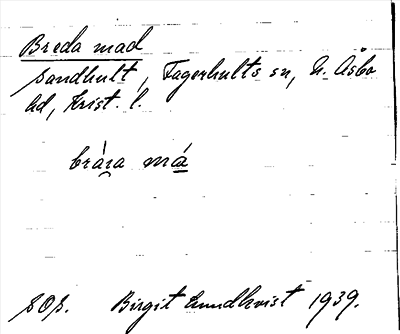 Breda mad
Sandhult, Fagerhults sn, N. Åsbo
hd, Krist. l.
brára má
SOS. Birgit Lundkvist 1939.